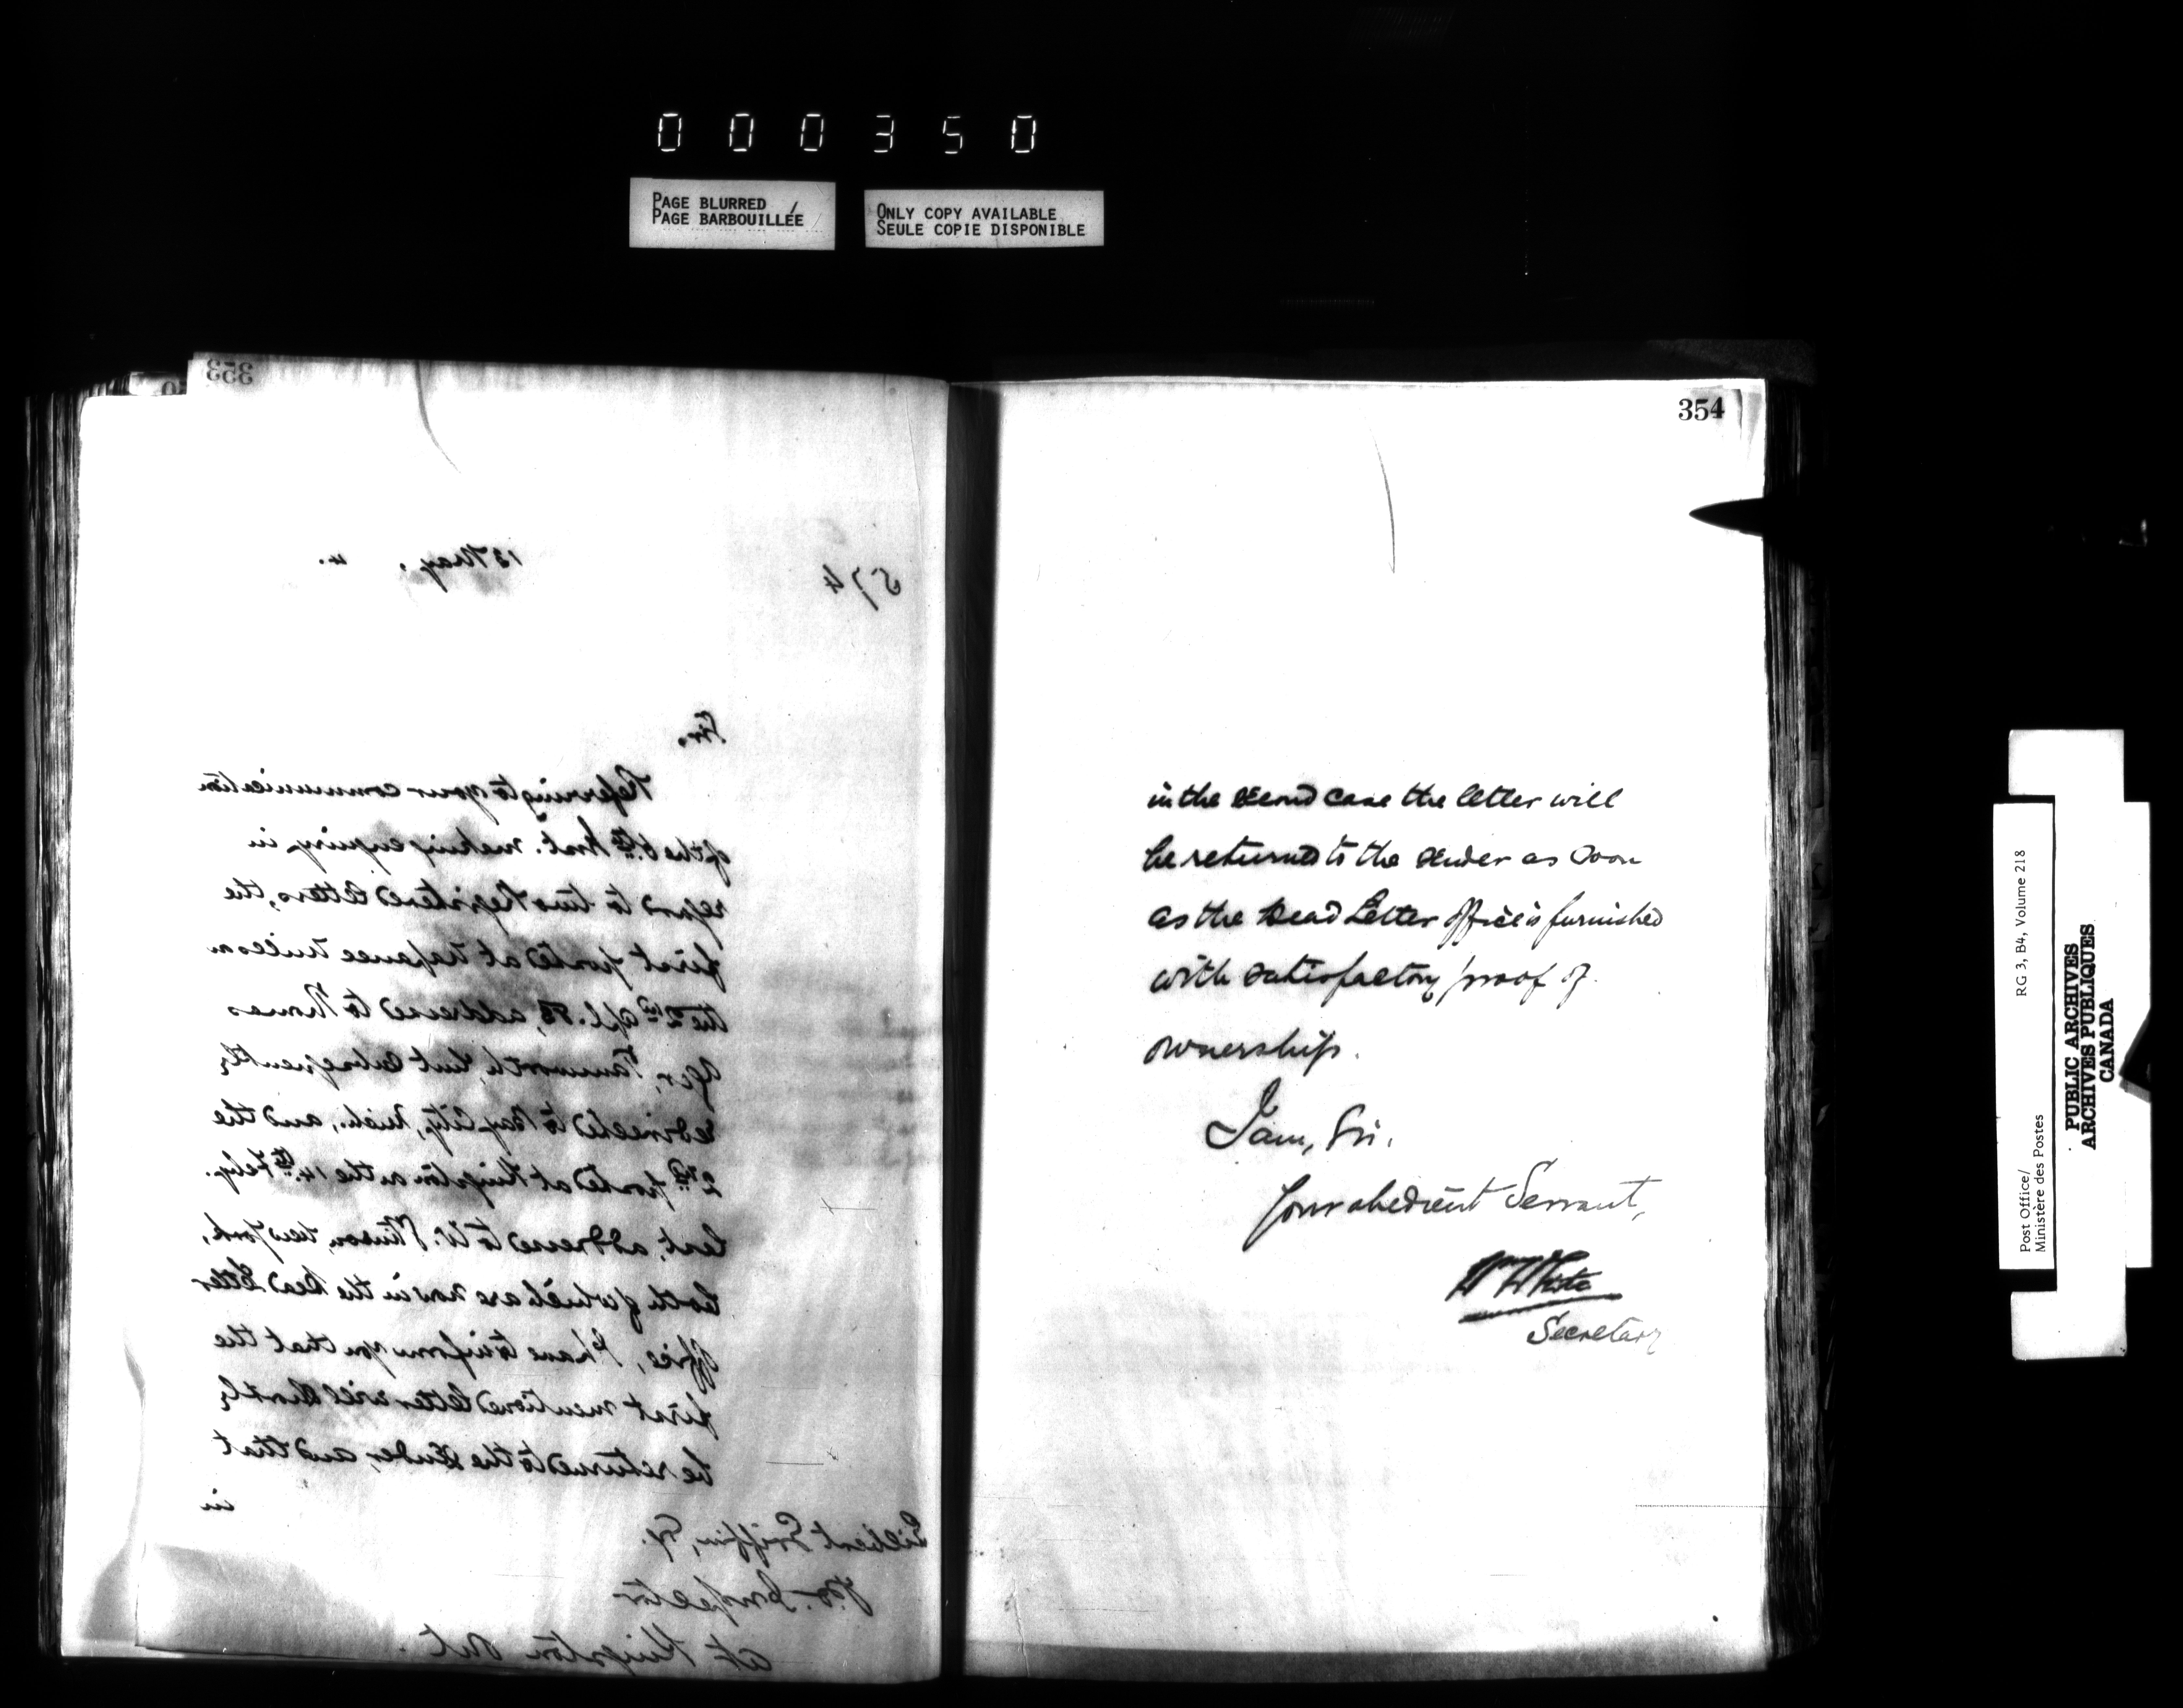 000350
PAGE BLURRED
PAGE BARBOUILLÉE
ONLY COPY AVAILABLE
SEULE COPIE DISPONIBLE
353
574
13 May, 4.
Sir,
Referring to your communication
of the 6th Inst. making enquiry in
regard to two Registered letters, the
first posted at Napanee Mills on
the 2nd Apl. 83, addressed to Thomas
Tamworth, but subsequently
redirected to Bay City, Mich., and the
2nd posted at Kingston on the 14th Feby.
last, addressed to W. Stinson, New York,
both of which are now in the Dead Letter
Office, I have to inform you that the
first mentioned letter will shortly
be returned to the sender, and that
in
Gilbert Griffin, Esq.
P.O. Inspector
at Kingston Ont.
354
in the second case the letter will
be returned to the sender as soon
as the Dead Letter Office is furnished
with satisfactory proof of
ownership.
I am, Sir,
Your obedient Servant,
Wm White
Secretary
RG 3, B4, Volume 218
Post Office/
Ministère des Postes
PUBLIC ARCHIVES
ARCHIVES PUBLIQUES
CANADA